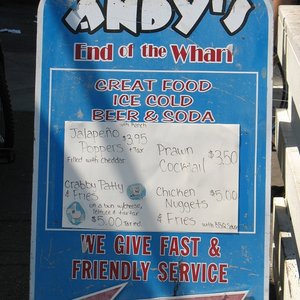 ANDY'S
End of the Wharf
GREAT FOOD
ICE COLD
BEER & SODA
with Ranch
Jalapeño $3.95
Poppers + Tax
Filled with cheddar
Prawn $3.50
Cocktail
Crabby Patty
& Fries
on a bun w/cheese,
lettuce & tartar
$5.00
Chicken $5.00
Nuggets
& Fries with BBQ Sauce
WE GIVE FAST &
FRIENDLY SERVICE